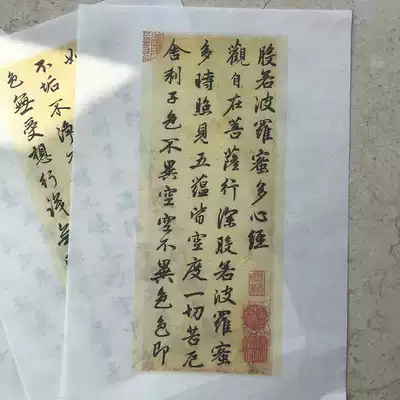 般若波羅蜜多心經
觀自在菩薩行深般若波羅蜜
多時照見五蕴皆空度一切苦厄
舍利子色不異空空不異色色即
不垢不淨不
色無受想行識無